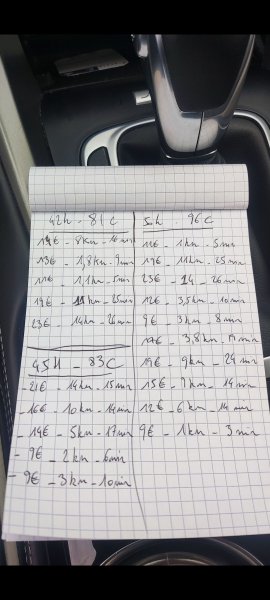 42h - 81€
19€ - 8km - 16min
13€ - 1,8km - 9min
11€ - 1,1km - 5min
19€ - 11km - 25min
23€ - 14km - 26min
45h - 83€
- 21€ - 14km - 15min
- 16€ - 10km - 14min
- 14€ - 5km - 17min
- 9€ - 2km - 6min
- 9€ - 3km - 10min
5h 96€
11€ - 1km - 5min
19€ - 11km - 25min
23€ - 14 - 26min
12€ - 3,5km - 10min
9€ - 3km - 8min
3,8km - 17min
19€ - 9km - 24min
15€ - 7km - 14min
12€ - 6km - 14min
9€ - 1km - 3min